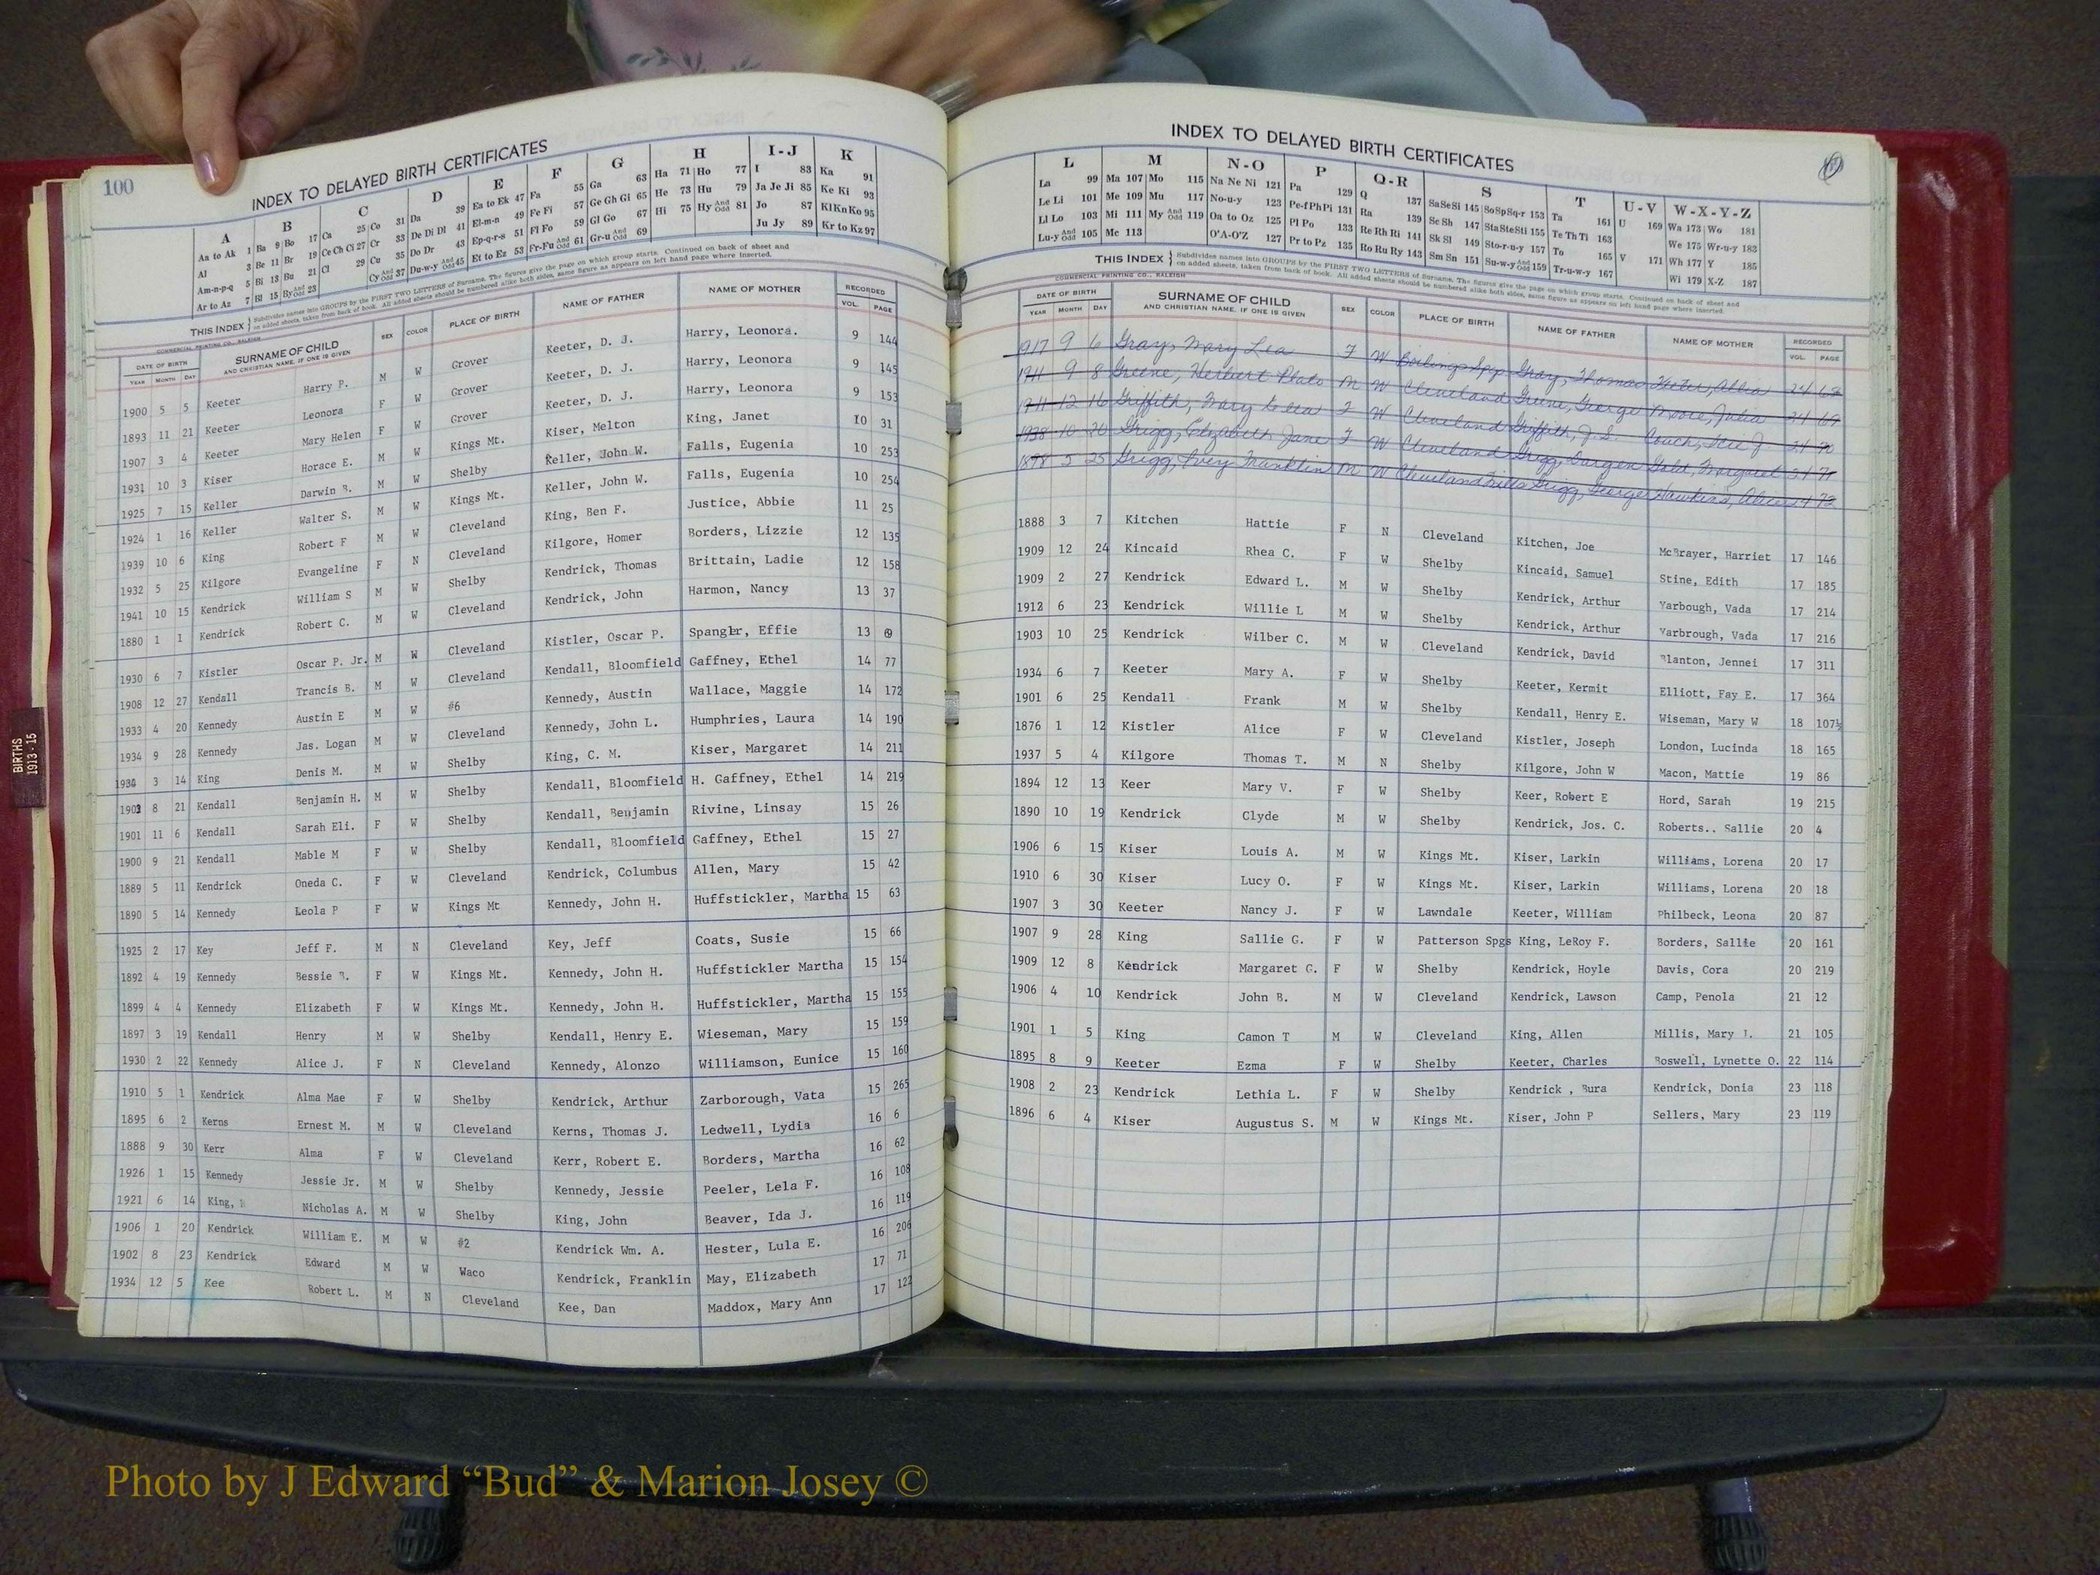 100
INDEX TO DELAYED BIRTH CERTIFICATES
A B C D E F G H I-J K
Aa to Ak 1 Ba 9 Bo 17 Ca 25 Co 31 Da 39 Ea to Ek 47 Fa 55 Ga 63 Ha 71 Ho 77 I 83 Ka 91
Al 3 Be 11 Br 19 Ce Ch Ci 27 Cr 33 De Di Dl 41 El-m-n 49 Fe Fi 57 Ge Gh Gi 65 He 73 Hu 79 Ja Je Ji 85 Ke Ki 93
Am-n-p-q 5 Bi 13 Bu 21 Cl 29 Cu 35 Do Dr 43 Ep-q-r-s 51 Fl Fo 59 Gl Go 67 Hi 75 Hy And Odd 81 Jo 87 Kl Kn Ko 95
Ar to Az 7 Bl 15 By And Odd 23 Cy And Odd 37 Du-w-y And Odd 45 Et to Ez 53 Fr-Fu And Odd 61 Gr-u And Odd 69 Ju Jy 89 Kr to Kz 97
THIS INDEX } Subdivides names into GROUPS by the FIRST TWO LETTERS of Surname. The figures give the page on which group starts. Continued on back of sheet and on added sheets, taken from back of book. All added sheets should be numbered alike both sides, same figure as appears on left hand page where inserted.
COMMERCIAL PRINTING CO., RALEIGH
DATE OF BIRTH SURNAME OF CHILD SEX COLOR PLACE OF BIRTH NAME OF FATHER NAME OF MOTHER RECORDED
YEAR MONTH DAY AND CHRISTIAN NAME, IF ONE IS GIVEN VOL. PAGE
1900 5 5 Keeter Harry P. M W Grover Keeter, D. J. Harry, Leonora. 9 144
1893 11 21 Keeter Leonora F W Grover Keeter, D. J. Harry, Leonora 9 145
1907 3 4 Keeter Mary Helen F W Grover Keeter, D. J. Harry, Leonora 9 153
1931 10 3 Kiser Horace E. M W Kings Mt. Kiser, Melton King, Janet 10 31
1925 7 15 Keller Darwin B. M W Shelby Keller, John W. Falls, Eugenia 10 253
1924 1 16 Keller Walter S. M W Kings Mt. Keller, John W. Falls, Eugenia 10 254
1939 10 6 King Robert F M W Cleveland King, Ben F. Justice, Abbie 11 25
1932 5 25 Kilgore Evangeline F N Cleveland Kilgore, Homer Borders, Lizzie 12 135
1941 10 15 Kendrick William S M W Shelby Kendrick, Thomas Brittain, Ladie 12 158
1880 1 1 Kendrick Robert C. M W Cleveland Kendrick, John Harmon, Nancy 13 37
1930 6 7 Kistler Oscar P. Jr. M W Cleveland Kistler, Oscar P. Spangler, Effie 13
1908 12 27 Kendall Trancis B. M W Cleveland Kendall, Bloomfield Gaffney, Ethel 14 77
1933 4 20 Kennedy Austin E M W #6 Kennedy, Austin Wallace, Maggie 14 172
1934 9 28 Kennedy Jas. Logan M W Cleveland Kennedy, John L. Humphries, Laura 14 190
1934 3 14 King Denis M. M W Shelby King, C. M. Kiser, Margaret 14 211
1903 8 21 Kendall Benjamin H. M W Shelby Kendall, Bloomfield H. Gaffney, Ethel 14 219
1901 11 6 Kendall Sarah Eli. F W Shelby Kendall, Benjamin Rivine, Linsay 15 26
1900 9 21 Kendall Mable M F W Shelby Kendall, Bloomfield Gaffney, Ethel 15 27
1889 5 11 Kendrick Oneda C. F W Cleveland Kendrick, Columbus Allen, Mary 15 42
1890 5 14 Kennedy Leola P F W Kings Mt Kennedy, John H. Huffstickler, Martha 15 63
1925 2 17 Key Jeff F. M N Cleveland Key, Jeff Coats, Susie 15 66
1892 4 19 Kennedy Bessie B. F W Kings Mt. Kennedy, John H. Huffstickler Martha 15 154
1899 4 4 Kennedy Elizabeth F W Kings Mt. Kennedy, John H. Huffstickler, Martha 15 155
1897 3 19 Kendall Henry M W Shelby Kendall, Henry E. Wieseman, Mary 15 159
1930 2 22 Kennedy Alice J. F N Cleveland Kennedy, Alonzo Williamson, Eunice 15 160
1910 5 1 Kendrick Alma Mae F W Shelby Kendrick, Arthur Zarborough, Vata 15 265
1895 6 2 Kerns Ernest M. M W Cleveland Kerns, Thomas J. Ledwell, Lydia 16 6
1888 9 30 Kerr Alma F W Cleveland Kerr, Robert E. Borders, Martha 16 62
1926 1 15 Kennedy Jessie Jr. M W Shelby Kennedy, Jessie Peeler, Lela F. 16 108
1921 6 14 King, Nicholas A. M W Shelby King, John Beaver, Ida J. 16 119
1906 1 20 Kendrick William E. M W #2 Kendrick Wm. A. Hester, Lula E. 16 206
1902 8 23 Kendrick Edward M W Waco Kendrick, Franklin May, Elizabeth 17 71
1934 12 5 Kee Robert L. M N Cleveland Kee, Dan Maddox, Mary Ann 17 122
INDEX TO DELAYED BIRTH CERTIFICATES
L M N-O P Q-R S T U-V W-X-Y-Z
La 99 Ma 107 Mo 115 Na Ne Ni 121 Pa 129 Q 137 Sa Se Si 145 So Sp Sq-r 153 Ta 161 U 169 Wa 173 Wo 181
Le Li 101 Me 109 Mu 117 No-u-y 123 Pe-f Ph Pi 131 Ra 139 Sc Sh 147 Sta Ste Sti 155 Te Th Ti 163 We 175 Wr-u-y 183
Ll Lo 103 Mi 111 My And Odd 119 Oa to Oz 125 Pl Po 133 Re Rh Ri 141 Sk Sl 149 Sto-r-u-y 157 To 165 V 171 Wh 177 Y 185
Lu-y And Odd 105 Mc 113 O'A-O'Z 127 Pr to Pz 135 Ro Ru Ry 143 Sm Sn 151 Su-w-y And Odd 159 Tr-u-w-y 167 Wi 179 X-Z 187
THIS INDEX } Subdivides names into GROUPS by the FIRST TWO LETTERS of Surname. The figures give the page on which group starts. Continued on back of sheet and on added sheets, taken from back of book. All added sheets should be numbered alike both sides, same figure as appears on left hand page where inserted.
COMMERCIAL PRINTING CO., RALEIGH
DATE OF BIRTH SURNAME OF CHILD SEX COLOR PLACE OF BIRTH NAME OF FATHER NAME OF MOTHER RECORDED
YEAR MONTH DAY AND CHRISTIAN NAME, IF ONE IS GIVEN VOL. PAGE
1917 9 6 Gray, Mary Lea F W Boilings Spgs Gray, Thomas 24 68
1911 9 8 Greene, Herbert Plato M W Cleveland Greene, George Moore, Julia 24 69
1911 12 16 Griffith, Mary F W Cleveland Griffith, J. S. Couch, 24 70
1938 10 26 Grigg, Elizabeth Jane F W Cleveland Grigg, Durgen Gold, Margaret 24 71
1898 5 25 Grigg, Ivey Franklin M W Cleveland Mills Grigg, George Hawkins, 24 72
1888 3 7 Kitchen Hattie F N Cleveland Kitchen, Joe McBrayer, Harriet 17 146
1909 12 24 Kincaid Rhea C. F W Shelby Kincaid, Samuel Stine, Edith 17 185
1909 2 27 Kendrick Edward L. M W Shelby Kendrick, Arthur Yarbough, Vada 17 214
1912 6 23 Kendrick Willie L M W Shelby Kendrick, Arthur Yarbrough, Vada 17 216
1903 10 25 Kendrick Wilber C. M W Cleveland Kendrick, David Blanton, Jennei 17 311
1934 6 7 Keeter Mary A. F W Shelby Keeter, Kermit Elliott, Fay E. 17 364
1901 6 25 Kendall Frank M W Shelby Kendall, Henry E. Wiseman, Mary W 18 107½
1876 1 12 Kistler Alice F W Cleveland Kistler, Joseph London, Lucinda 18 165
1937 5 4 Kilgore Thomas T. M N Shelby Kilgore, John W Macon, Mattie 19 86
1894 12 13 Keer Mary V. F W Shelby Keer, Robert E Hord, Sarah 19 215
1890 10 19 Kendrick Clyde M W Shelby Kendrick, Jos. C. Roberts.. Sallie 20 4
1906 6 15 Kiser Louis A. M W Kings Mt. Kiser, Larkin Williams, Lorena 20 17
1910 6 30 Kiser Lucy O. F W Kings Mt. Kiser, Larkin Williams, Lorena 20 18
1907 3 30 Keeter Nancy J. F W Lawndale Keeter, William Philbeck, Leona 20 87
1907 9 28 King Sallie G. F W Patterson Spgs King, LeRoy F. Borders, Sallie 20 161
1909 12 8 Kendrick Margaret G. F W Shelby Kendrick, Hoyle Davis, Cora 20 219
1906 4 10 Kendrick John B. M W Cleveland Kendrick, Lawson Camp, Penola 21 12
1901 1 5 King Camon T M W Cleveland King, Allen Millis, Mary I. 21 105
1895 8 9 Keeter Ezma F W Shelby Keeter, Charles Boswell, Lynette O. 22 114
1908 2 23 Kendrick Lethia L. F W Shelby Kendrick , Bura Kendrick, Donia 23 118
1896 6 4 Kiser Augustus S. M W Kings Mt. Kiser, John P Sellers, Mary 23 119
BIRTHS
1913-15
Photo by J Edward “Bud” & Marion Josey ©